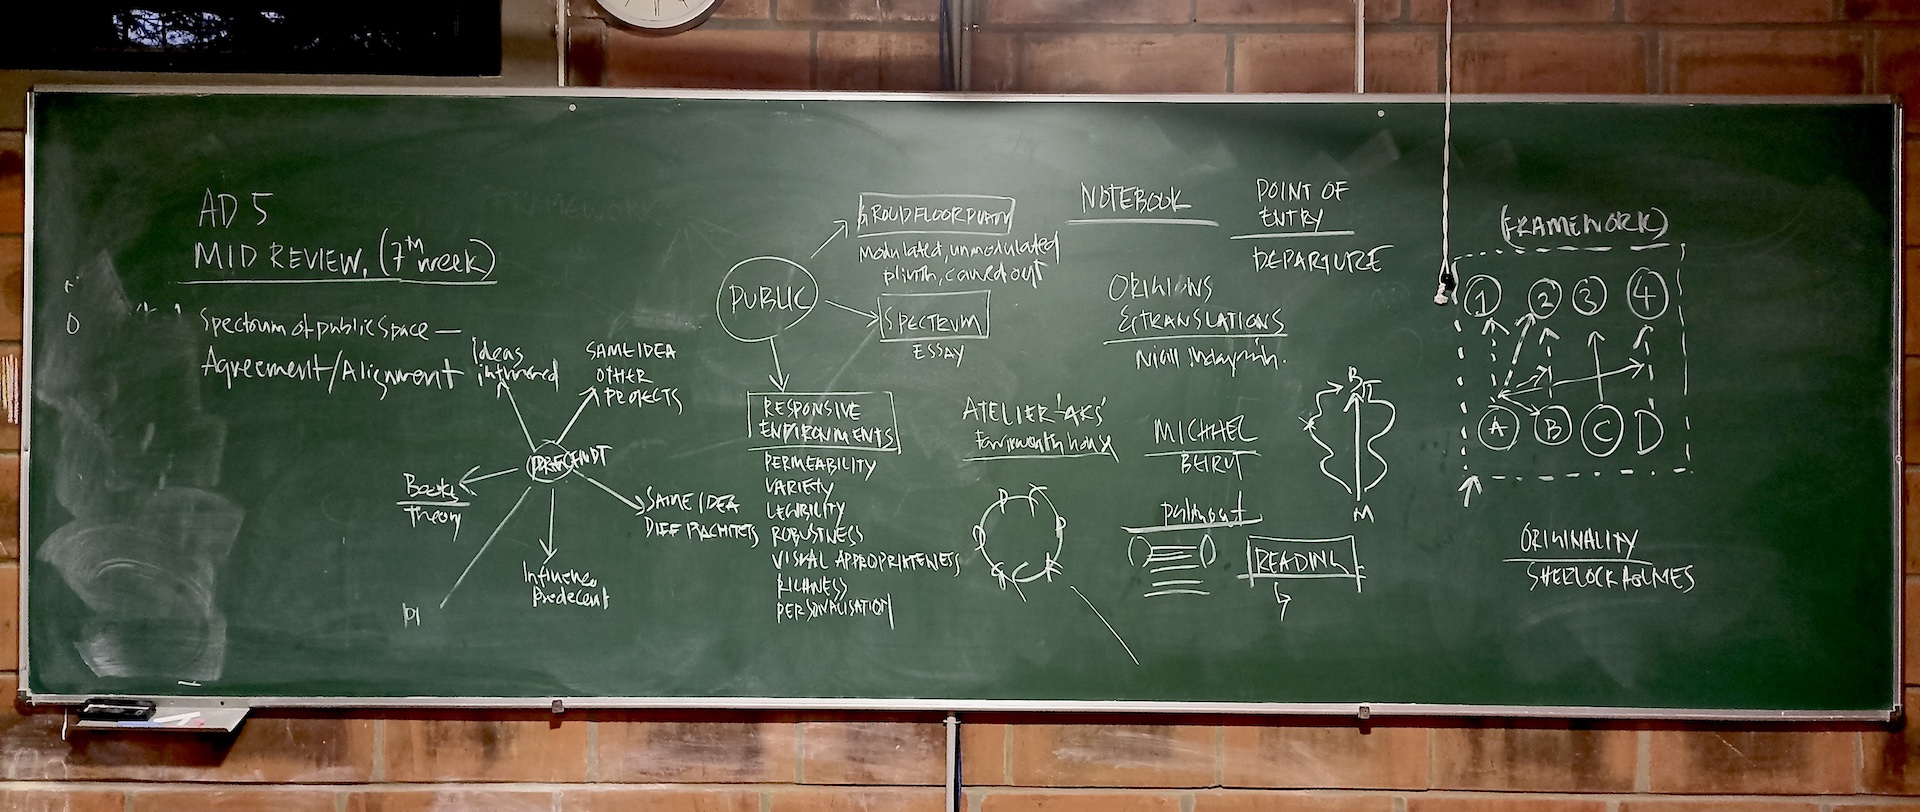 AD 5
MID REVIEW. (7TH week)
Spectrum of public space —
Agreement/Alignment
Ideas
influenced
SAME IDEA
OTHER
PROJECTS
PRECENDT
Books
Theory
SAME IDEA
DIFF
Influence
Predecent
PUBLIC
modulated, unmodulated
plinth, carved out
SPECTRUM
ESSAY
RESPONSIVE
ENVIRONMENTS
PERMEABILITY
VARIETY
LEGIBILITY
ROBUSTNESS
VISUAL APPROPRIATENESS
RICHNESS
PERSONALISATION
NOTEBOOK
POINT OF
ENTRY
DEPARTURE
ORIGIONS
& TRANSLATIONS
Niall
ATELIER 'AKS'
MICHAEL
BEIRUT
B
M
READING
(FRAMEWORK)
1 2 3 4
A B C D
ORIGINALITY
SHERLOCK HOLMES